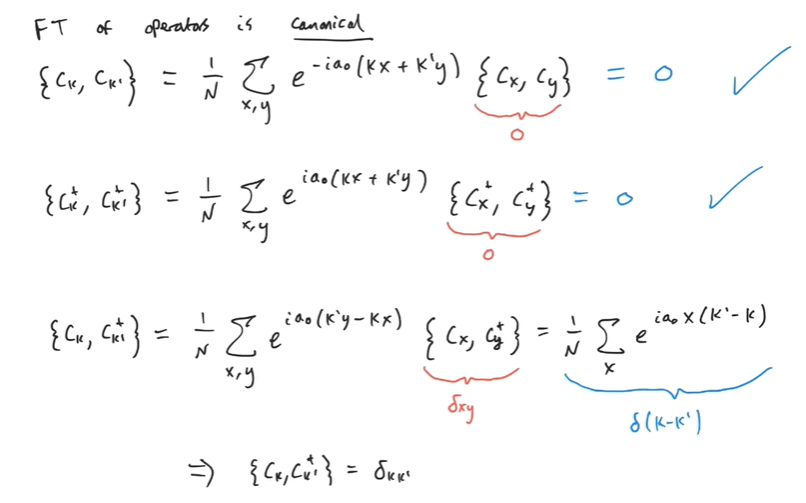 FT of operators is canonical
{C_k, C_k'} = 1/N Σ_{x,y} e^{-ia₀(kx + k'y)} {C_x, C_y} = 0 ✓
0
{C_k^†, C_k'^†} = 1/N Σ_{x,y} e^{ia₀(kx + k'y)} {C_x^†, C_y^†} = 0 ✓
0
{C_k, C_k'^†} = 1/N Σ_{x,y} e^{ia₀(k'y - kx)} {C_x, C_y^†} = 1/N Σ_x e^{ia₀x(k' - k)}
δ_{xy} δ(k-k')
⇒ {C_k, C_k'^†} = δ_{kk'}